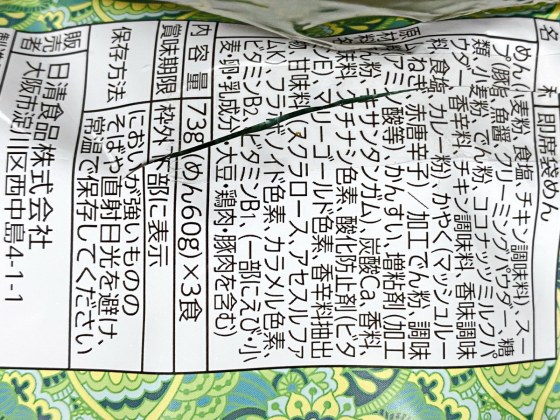 名 称 即席袋めん
めん(小麦粉、食塩、チキン調味料)、スー
プ(豚脂、魚醤、クリーミングパウダー、糖
類、小麦粉、でん粉、ココナッツミルクパ
ウダー、香辛料、チキン調味料、香味調味
料、食塩、カレー粉)、かやく(マッシュルー
ム、ねぎ、赤唐辛子)/加工でん粉、調味
酸等)、かんすい、増粘剤(加工
ん粉、キサンタンガム)、炭酸Ca、香料、
クチナシ色素、酸化防止剤(ビタ
E)、マリーゴールド色素、香辛料抽出
物、甘味料 スクラロース、アセスルファ
ムK)、フラボノイド色素、カラメル色素、
ビタミンB2、ビタミンB1、(一部にえび・小
麦・卵・乳成分・大豆・鶏肉・豚肉を含む)
内 容 量 73g(めん60g)×3食
賞味期限 枠外 部に表示
保存方法 においが強いものの
そばや直射日光を避け、
常温で保存してください
販売者 日清食品株式会社
大阪市淀川区西中島4-1-1